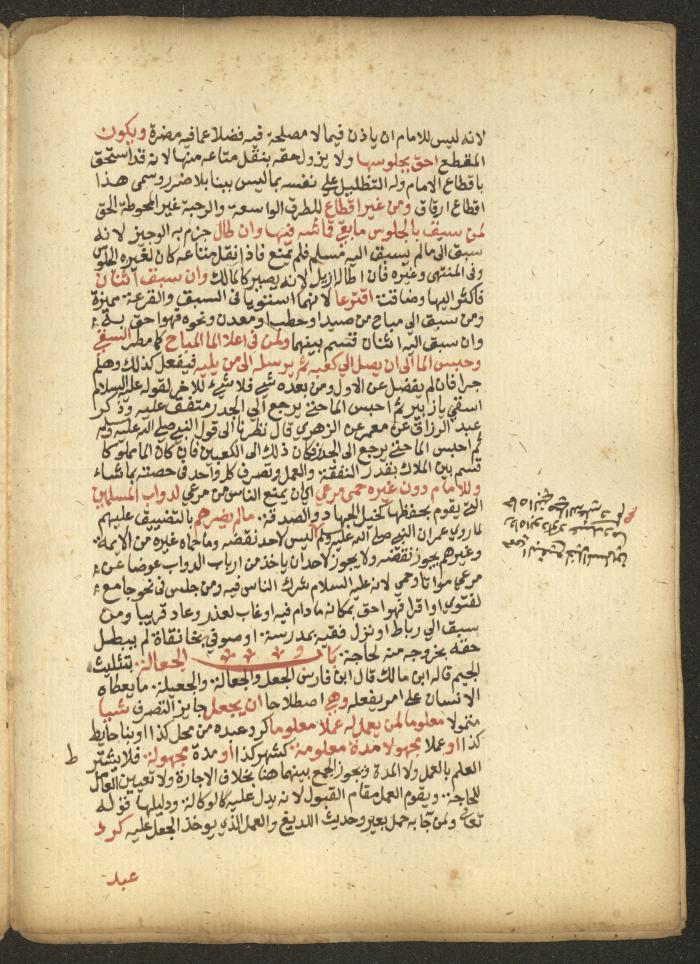 لانه ليس للامام ان ياذن فيما لا مصلحة فيه فضلا عما فيه مضرة ويكون
المقطع احق بجلوسها ولا يزول حقه بنقل متاعه منها لانه قد استحق
باقطاع الامام وله التظليل على نفسه بما ليس ببنا بلا ضرر وسمى هذا
اقطاع ارفاق ومن غير اقطاع للطرق الواسعة والرحبة غير المحوطة الحق
لمن سبق بالجلوس ما بقي قماشه فيها وان طال جزم به الوجيز لانه
سبق الى ما لم يسبق اليه مسلم فلم يمنع فاذا نقل متاعه كان لغيره الجلوس
وفى المنتهى وغيره فان اطال ازيل لانه يصير كالمالك وان سبق اثنان
فاكثر اليها وضاقت اقترعا لانهما استويا فى السبق والقرعة مميزة
ومن سبق الى مباح من صيد او حطب او معدن ونحوه فهو احق به
وان سبق اليه اثنان قسم بينهما ولمن فى اعلا الما المباح كما مطر السقي
وحبس الما الى ان يصل الى كعبه ثم يرسله الى من يليه فيفعل كذلك وهلم
جرا فان لم يفضل عن الاول ومن بعده شي فلا شي للاخر لقوله عليه السلام
اسقي يا زبير ثم احبس الما حتى يرجع الى الجدر متفق عليه وذكر
عبد الرزاق عن معمر عن الزهري قال نظرنا الى قول النبي صلى الله عليه وسلم
ثم احبس الما حتى يرجع الى الجدر فكان ذلك الى الكعبين فان كان الما مملوكا
قسم بين الملاك بقدر النفقة والعمل وتصرف كل واحد فى حصته بما شاء
وللامام دون غيره حمى مرعى اي ان يمنع الناس من مرعى لدواب المسلمين
التي يقوم بحفظها كخيل الجهاد والصدقة ما لم يضرهم بالتضييق عليهم
لما روي عمر ان النبي صلى الله عليه وسلم ليس لاحد نقضه وما حماه غيره من الائمة
وغيرهم يجوز نقضه ولا يجوز لاحد ان ياخذ من ارباب الدواب عوضا عن
مرعى موات او حمى لانه عليه السلام شرك الناس فيه ومن جلس فى نحو جامع
لفتوى او اقرا فهو احق بمكانه ما دام فيه او غاب لعذر وعاد قريبا ومن
سبق الى رباط او نزل فقيه بمدرسة او صوفي بخانقاة لم يبطل
حقه بخروجه منه لحاجة باب الجعالة بتثليث
الجيم قاله ابن مالك قال ابن فارس الجعل والجعالة والجعيلة ما يعطاه
الانسان على امر يفعله وهي اصطلاحا ان يجعل جايز التصرف شيا
متمولا معلوما لمن يعمل له عملا معلوما كرد عبده من محل كذا او بنا حايط
كذا او عملا مجهولا مدة معلومة كشهر كذا او مدة مجهولة فلا يشترط
العلم بالعمل ولا المدة ويجوز الجمع بينهما هنا بخلاف الاجارة ولا تعيين العامل
للحاجة ويقوم العمل مقام القبول لانه يدل عليه كالوكالة ودليلها قوله
تعالى ولمن جا به حمل بعير وحديث اللديغ والعمل الذي يوخذ الجعل عليه كرد
عبد